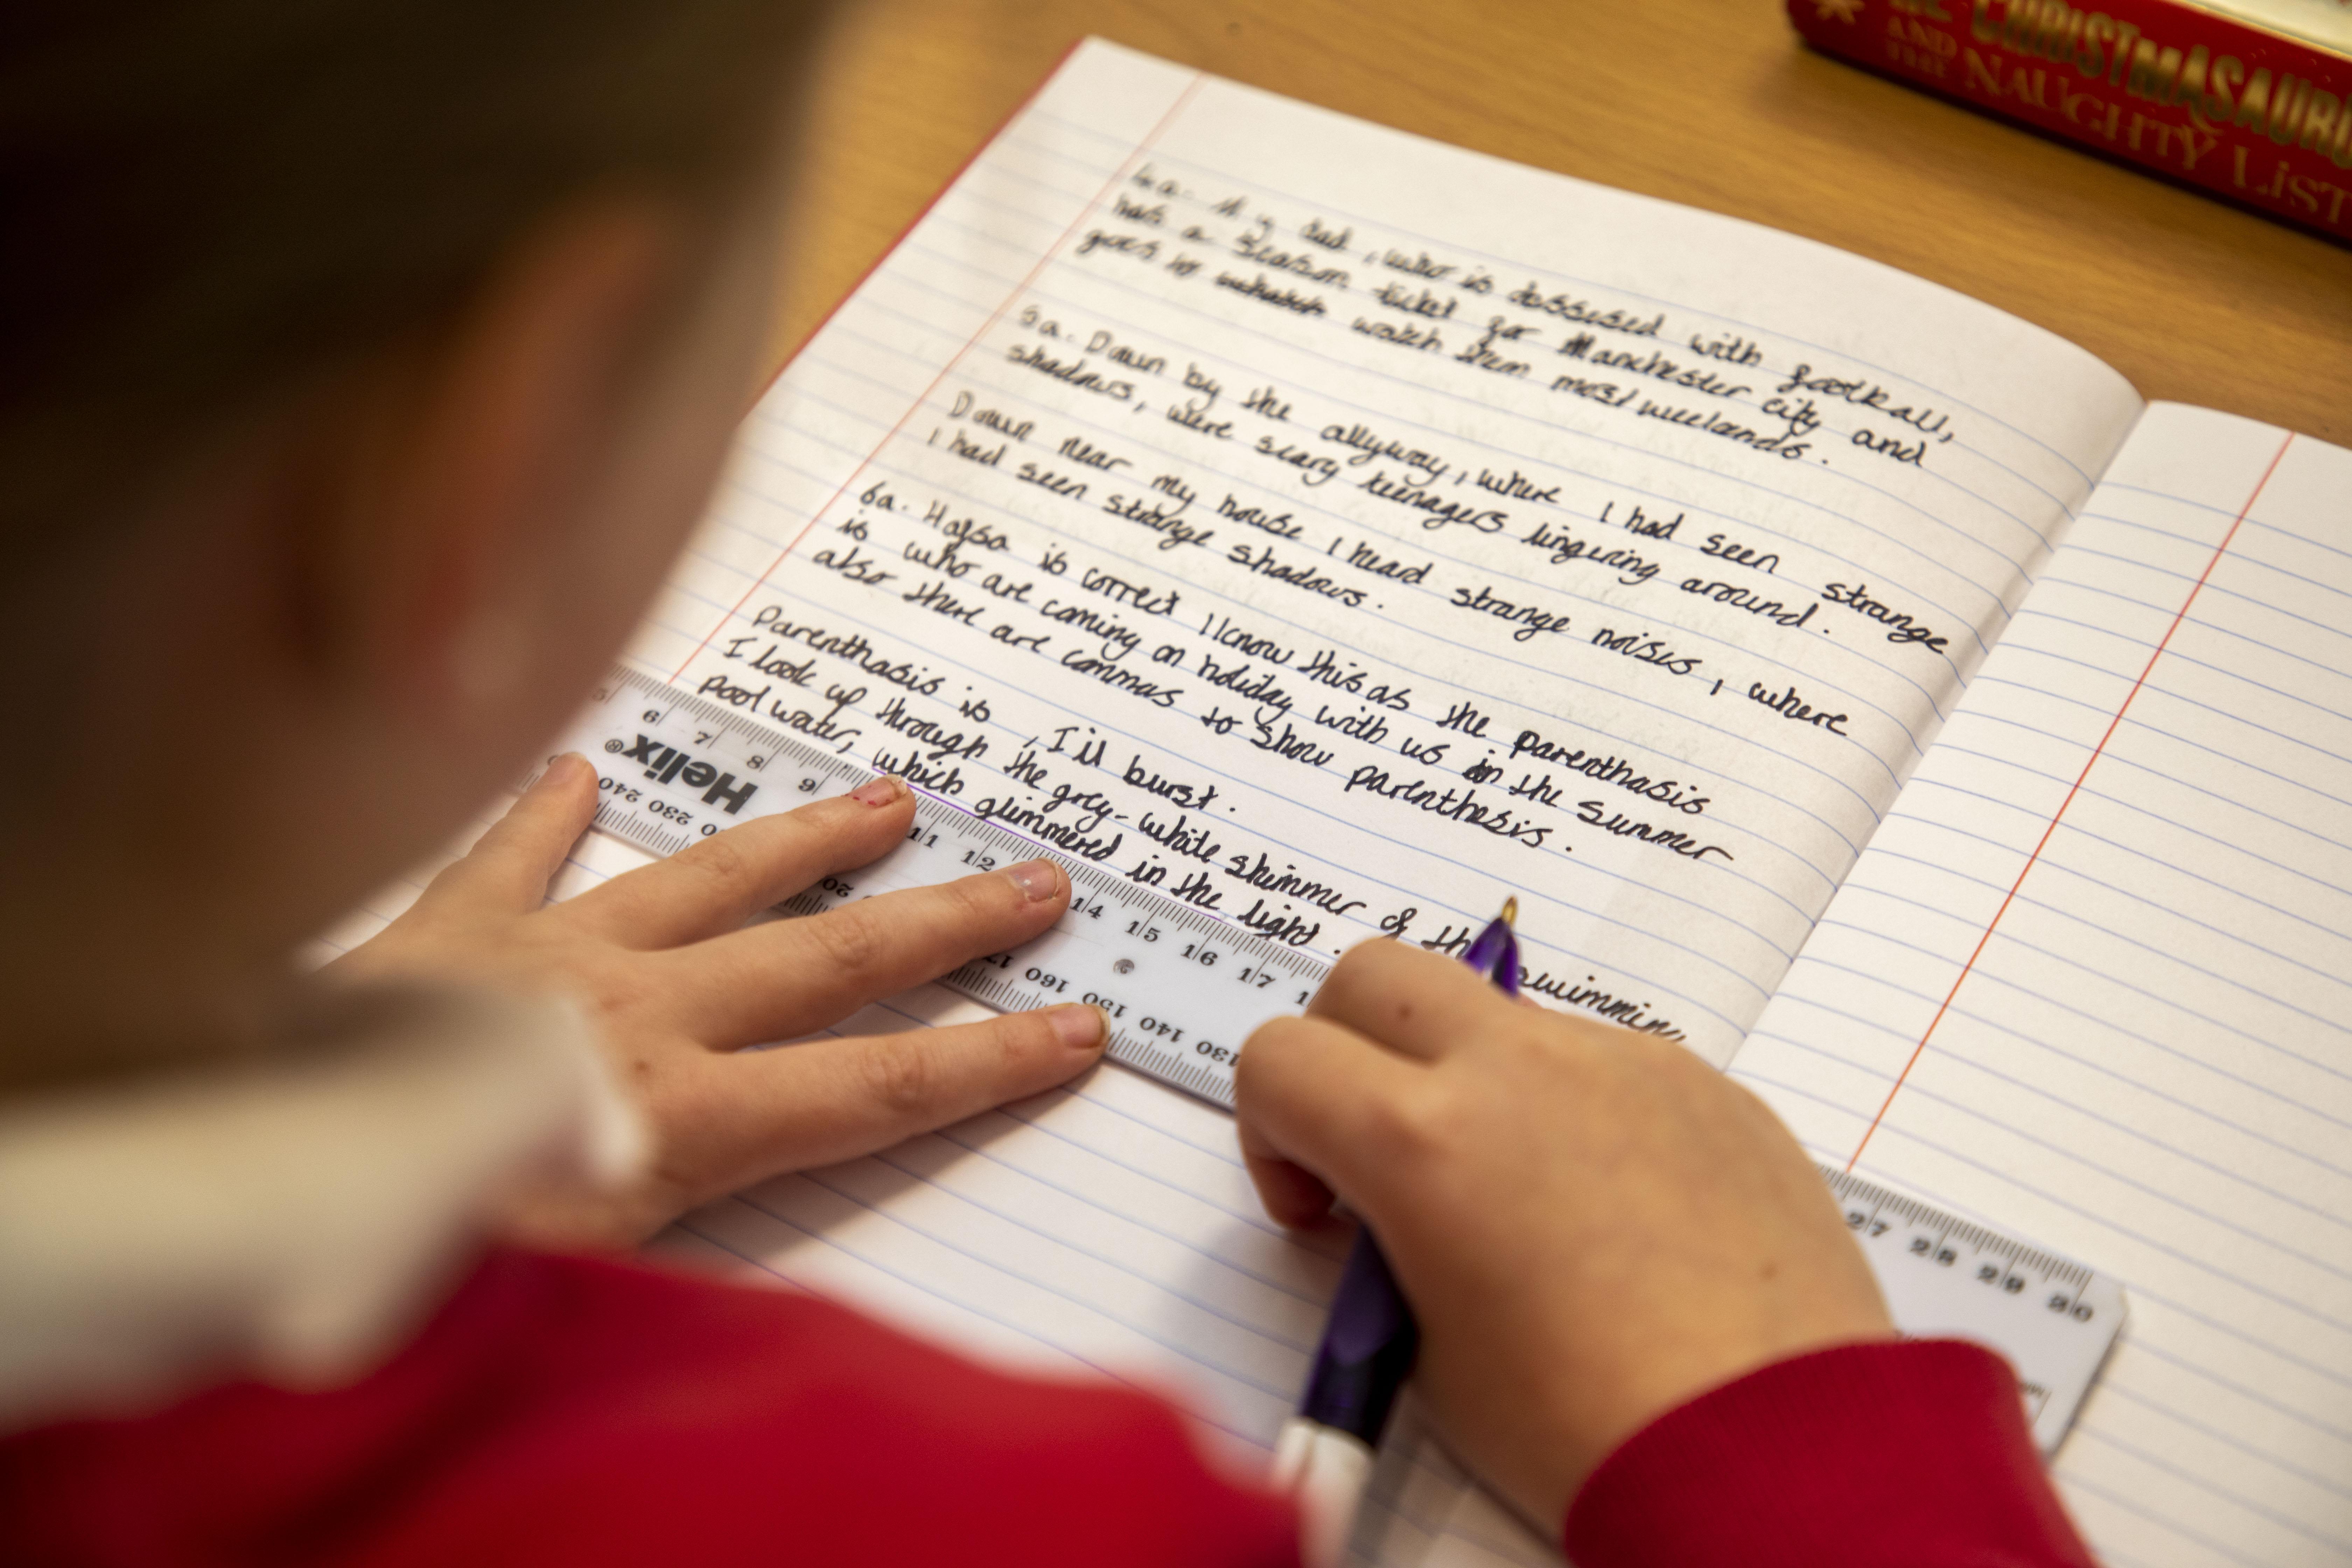 THE CHRISTMASAURUS
AND
THE NAUGHTY LIST
4a. My dad, who is obssesed with football,
has a season ticket for Manchester city and
goes to watch them most weekends.
5a. Down by the allyway, where I had seen strange
shadows, were scary teenagers lingering around.
Down near my house I heard strange noises, where
I had seen strange shadows.
6a. Hafsa is correct I know this as the parenthasis
is who are coming on holiday with us in the summer
also there are commas to show parenthesis.
Parenthasis is , I'll burst.
I look up through the grey-white shimmer of the swimming
pool water, which glimmered in the light.
6 7 8 9 11 12 14 15 16 17
Helix®
240 230 160 150 140 130
27 28 29 30